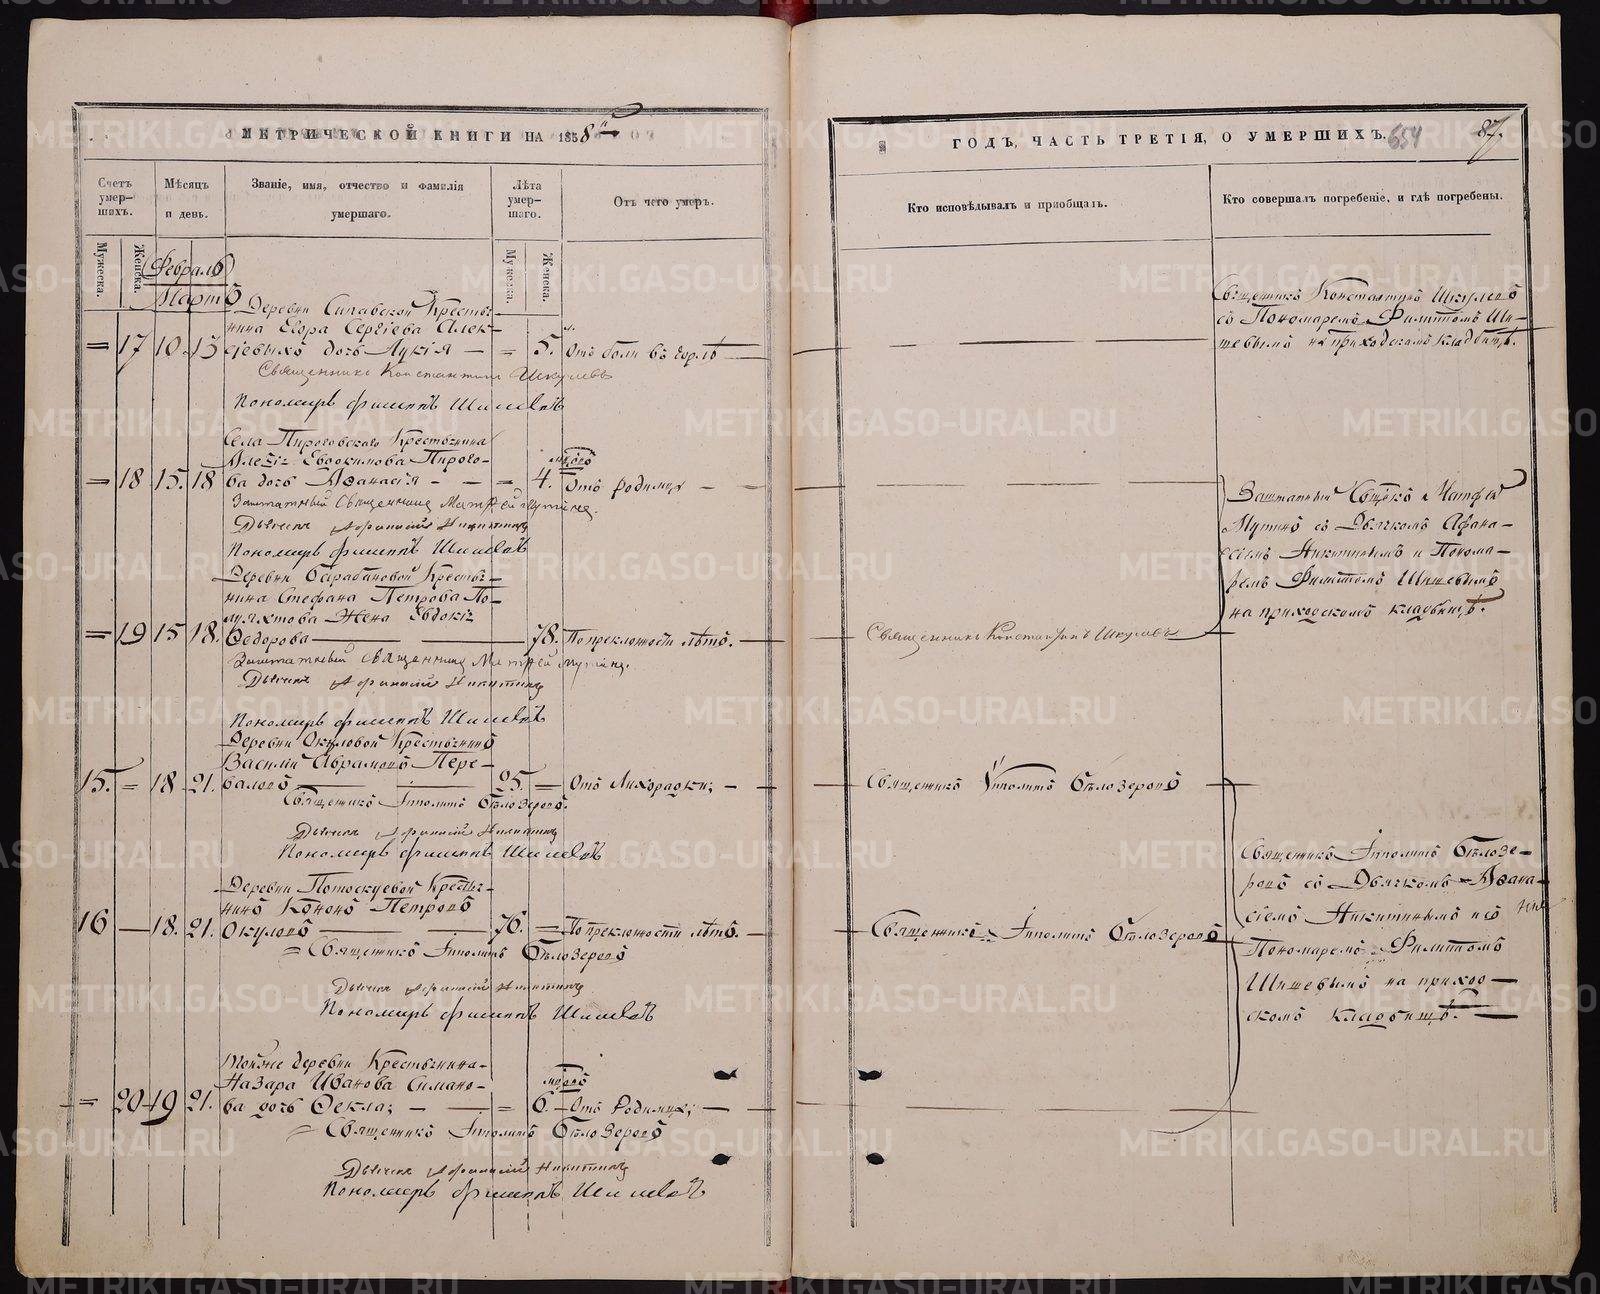 МЕТРИЧЕСКОЙ КНИГИ НА 1858й
Счетъ умер-шихъ.
Мѣсяцъ и день.
Званіе, имя, отчество и фамилія умершаго.
Лѣта умер-шаго.
Отъ чего умеръ.
Мужеска.
Женска.
Мужеска.
Женска.
Февраль
Мартъ
Деревни Крестья-
нина Егора Сергіева Алек-
= 17 10. 13 сѣевыхъ дочь Лукія — = 5. Отъ боли въ горлѣ
Священникъ Константинъ Шкулевъ
Пономарь Филиппъ Шишевъ
Села Пироговскаго Крестьянина
Алексія Евдокимова Пирого-
= 18 15. 18 ва дочь Афанасія — — = 4. Отъ родимца — —
Заштатный Священникъ Матфей Мутинъ.
Дьячекъ Афанасій Никитинъ
Пономарь Филиппъ Шишевъ
Деревни Барабановой Крестья-
нина Стефана Петрова По-
Жена Евдокія
= 19 15 18. Федорова — 78. По преклонности лѣтъ. —
Заштатный священникъ Матфей Мутинъ.
Дьячекъ Афанасій Никитинъ
Пономарь Филиппъ Шишевъ
Деревни Окуловой Крестьянинъ
Василій Аврамовъ Пере-
15. = 18 21. валовъ — 25. = Отъ Лихорадки; —
Священникъ Ипполитъ Бѣлозеровъ.
Дьячекъ Афанасій Никитинъ
Пономарь Филиппъ Шишевъ
Деревни Потоскуевой Крестья-
нинъ Кононъ Петровъ
16 — 18. 21. Окуловъ — 76. = По преклонности лѣтъ. —
= Священникъ Ипполитъ Бѣлозеровъ
Дьячекъ Афанасій Никитинъ
Пономарь Филиппъ Шишевъ
Той же деревни Крестьянина
Назара Иванова Симано-
= 20 19 21. ва дочь Фекла; — = 6. Отъ Родимца; —
= Священникъ Ипполитъ Бѣлозеровъ
Дьячекъ Афанасій Никитинъ
Пономарь Филиппъ Шишевъ
ГОДЪ, ЧАСТЬ ТРЕТІЯ, О УМЕРШИХЪ. 654 87.
Кто исповѣдывалъ и пріобщалъ.
Кто совершалъ погребеніе, и гдѣ погребены.
Священникъ Константинъ Шкулевъ
съ Пономаремъ Филиппомъ Ши-
шевымъ на приходскомъ кладбищѣ.
Заштатный Матфей
Мутинъ съ Дьячкомъ Афана-
сіемъ Никитинымъ и Понома-
ремъ Филиппомъ Шишевымъ
на приходскомъ кладбищѣ.
Священникъ Константинъ Шкулевъ
Священникъ Ипполитъ Бѣлозеровъ
Священникъ Ипполитъ Бѣлозе-
ровъ съ Дьячкомъ Афана-
сіемъ Никитинымъ и съ
Пономаремъ Филиппомъ
Шишевымъ на приход-
скомъ кладбищѣ.
Священникъ Ипполитъ Бѣлозеровъ
METRIKI.GASO-URAL.RU